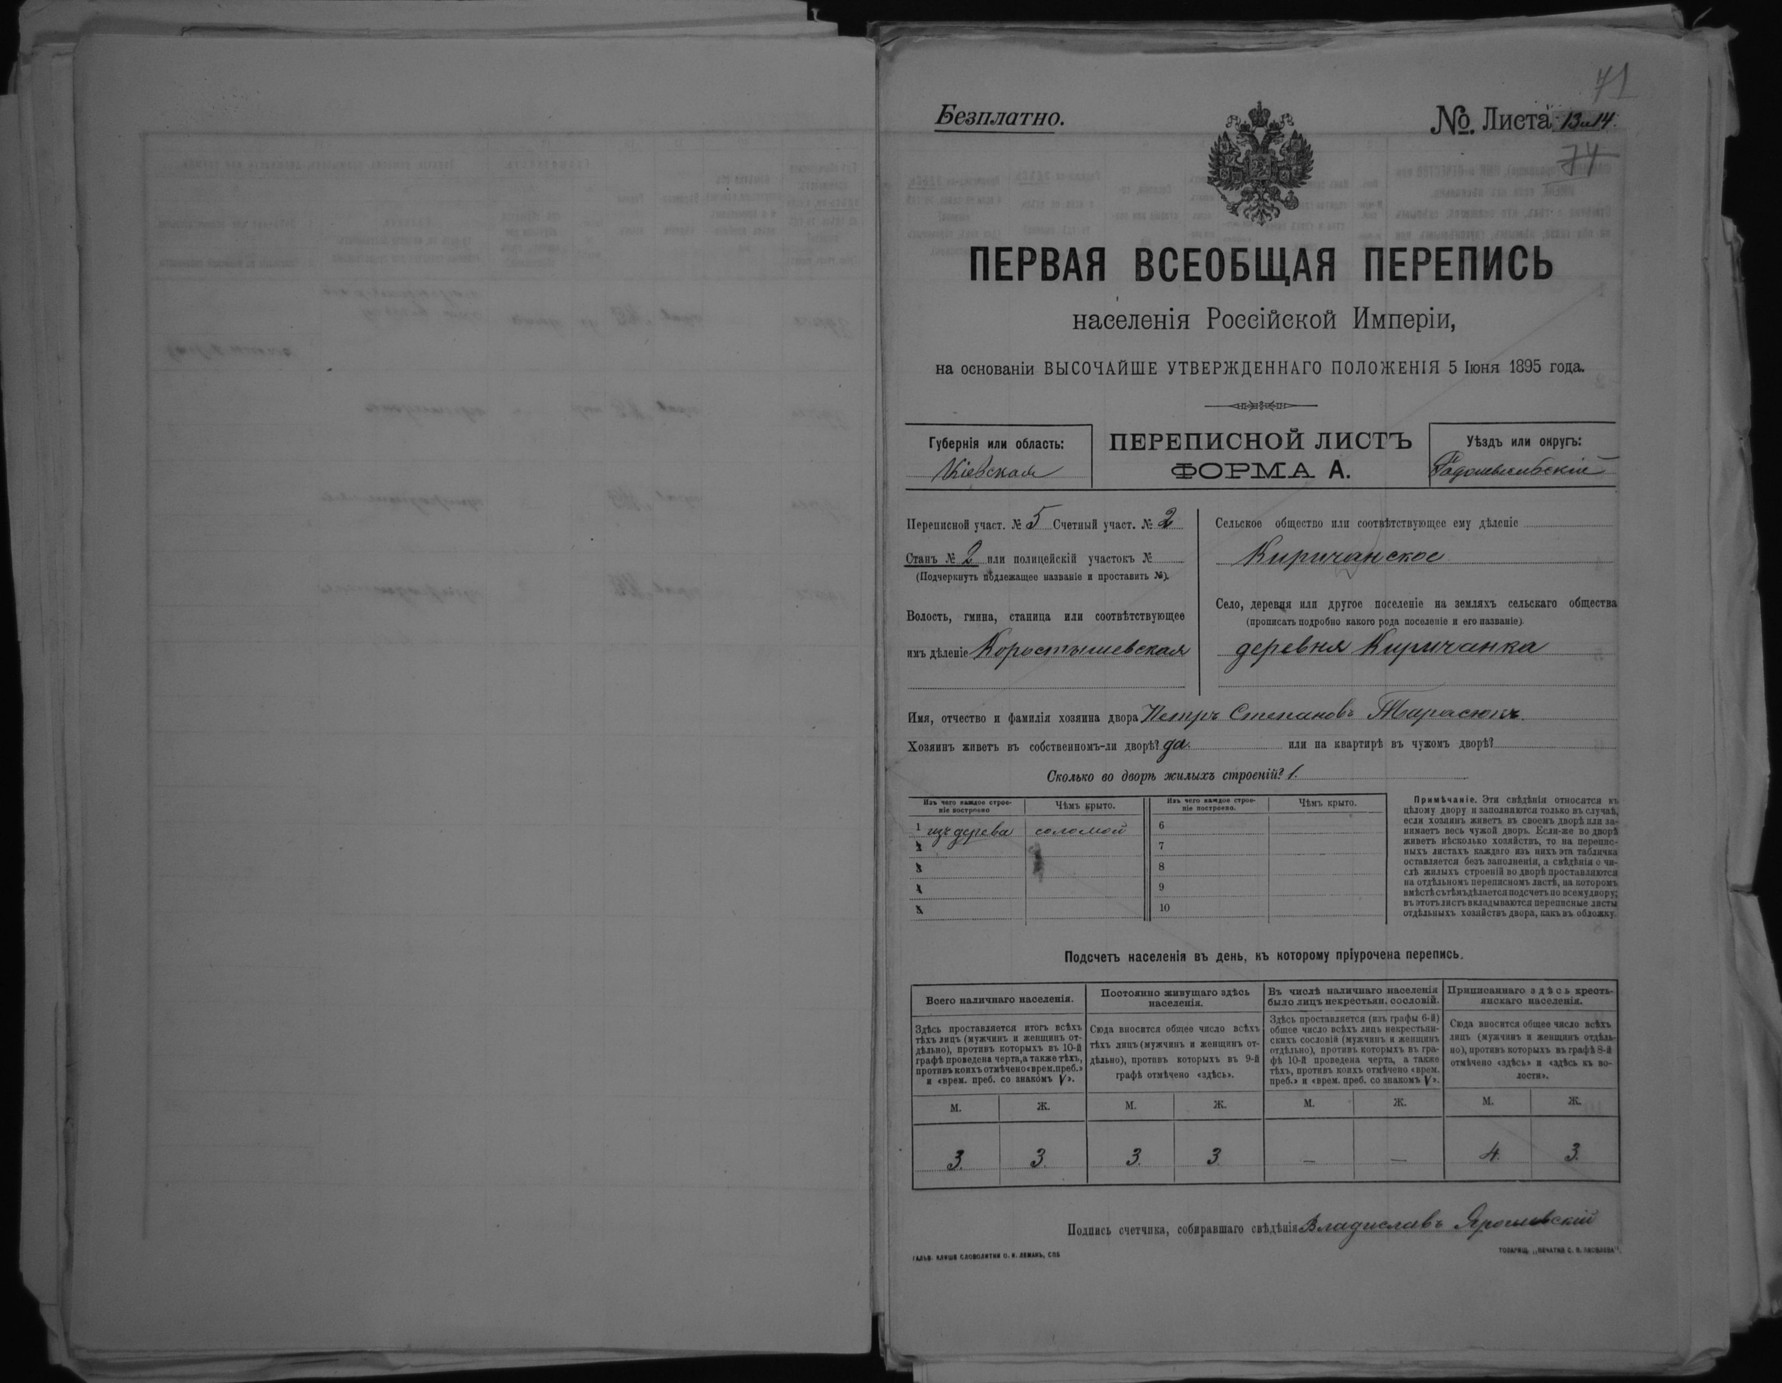 71
Безплатно.
№. Листа 13 и 14.
74
ПЕРВАЯ ВСЕОБЩАЯ ПЕРЕПИСЬ
населенія Россійской Имперіи,
на основаніи ВЫСОЧАЙШЕ УТВЕРЖДЕННАГО ПОЛОЖЕНІЯ 5 Іюня 1895 года.
Губернія или область:
Кіевская
ПЕРЕПИСНОЙ ЛИСТЪ
ФОРМА А.
Уѣздъ или округъ:
Радомысльскій
Переписной участ. № 5 Счетный участ. № 2
Станъ № 2 или полицейскій участокъ №
(Подчеркнуть подлежащее названіе и проставить №).
Волость, гмина, станица или соотвѣтствующее
имъ дѣленіе Коростышевская
Сельское общество или соотвѣтствующее ему дѣленіе
Киричанское
Село, деревня или другое поселеніе на земляхъ сельскаго общества
(прописать подробно какого рода поселеніе и его названіе).
деревня Киричанка
Имя, отчество и фамилія хозяина двора Петръ Степановъ Тарасюкъ.
Хозяинъ живетъ въ собственномъ-ли дворѣ? да. или на квартирѣ въ чужомъ дворѣ?
Сколько во дворѣ жилыхъ строеній? 1.
Изъ чего каждое строе-
ніе построено
Чѣмъ крыто.
1 изъ дерева соломой
2
3
4
5
Изъ чего каждое строе-
ніе построено.
Чѣмъ крыто.
6
7
8
9
10
Примѣчаніе. Эти свѣдѣнія относятся къ
цѣлому двору и заполняются только въ случаѣ,
если хозяинъ живетъ въ своемъ дворѣ или за-
нимаетъ весь чужой дворъ. Если-же во дворѣ
живетъ нѣсколько хозяйствъ, то на перепис-
ныхъ листахъ каждаго изъ нихъ эта табличка
оставляется безъ заполненія, а свѣдѣнія о чи-
слѣ жилыхъ строеній во дворѣ проставляются
на отдѣльномъ переписномъ листѣ, на которомъ
вмѣстѣ съ тѣмъ дѣлается подсчетъ по всему двору;
въ этотъ листъ вкладываются переписные листы
отдѣльныхъ хозяйствъ двора, какъ въ обложку.
Подсчетъ населенія въ день, къ которому пріурочена перепись.
Всего наличнаго населенія.
Здѣсь проставляется итогъ всѣхъ
тѣхъ лицъ (мужчинъ и женщинъ от-
дѣльно), противъ которыхъ въ 10-й
графѣ проведена черта, а также тѣхъ,
противъ коихъ отмѣчено «врем. преб.»
и «врем. преб. со знакомъ V».
М. Ж.
3. 3.
Постоянно живущаго здѣсь
населенія.
Сюда вносится общее число всѣхъ
тѣхъ лицъ (мужчинъ и женщинъ от-
дѣльно), противъ которыхъ въ 9-й
графѣ отмѣчено «здѣсь».
М. Ж.
3. 3.
Въ числѣ наличнаго населенія
было лицъ некрестьян. сословій.
Здѣсь проставляется (изъ графы 6-й)
общее число всѣхъ лицъ некрестьян-
скихъ сословій (мужчинъ и женщинъ
отдѣльно), противъ которыхъ въ гра-
фѣ 10-й проведена черта, а также
тѣхъ, противъ коихъ отмѣчено «врем.
преб.» и «врем. преб. со знакомъ V».
М. Ж.
— —
Приписаннаго здѣсь кресть-
янскаго населенія.
Сюда вносится общее число всѣхъ
лицъ (мужчинъ и женщинъ отдѣль-
но), противъ которыхъ въ графѣ 8-й
отмѣчено «здѣсь» и «здѣсь къ во-
лости».
М. Ж.
4. 3.
Подпись счетчика, собиравшаго свѣдѣнія Владиславъ Ярошевскій
ГАЛЬВ. КЛИШЕ СЛОВОЛИТНИ О. И. ЛЕМАНЪ, СПБ
ТОВАРИЩ. „ПЕЧАТНЯ С. П. ЯКОВЛЕВА“.